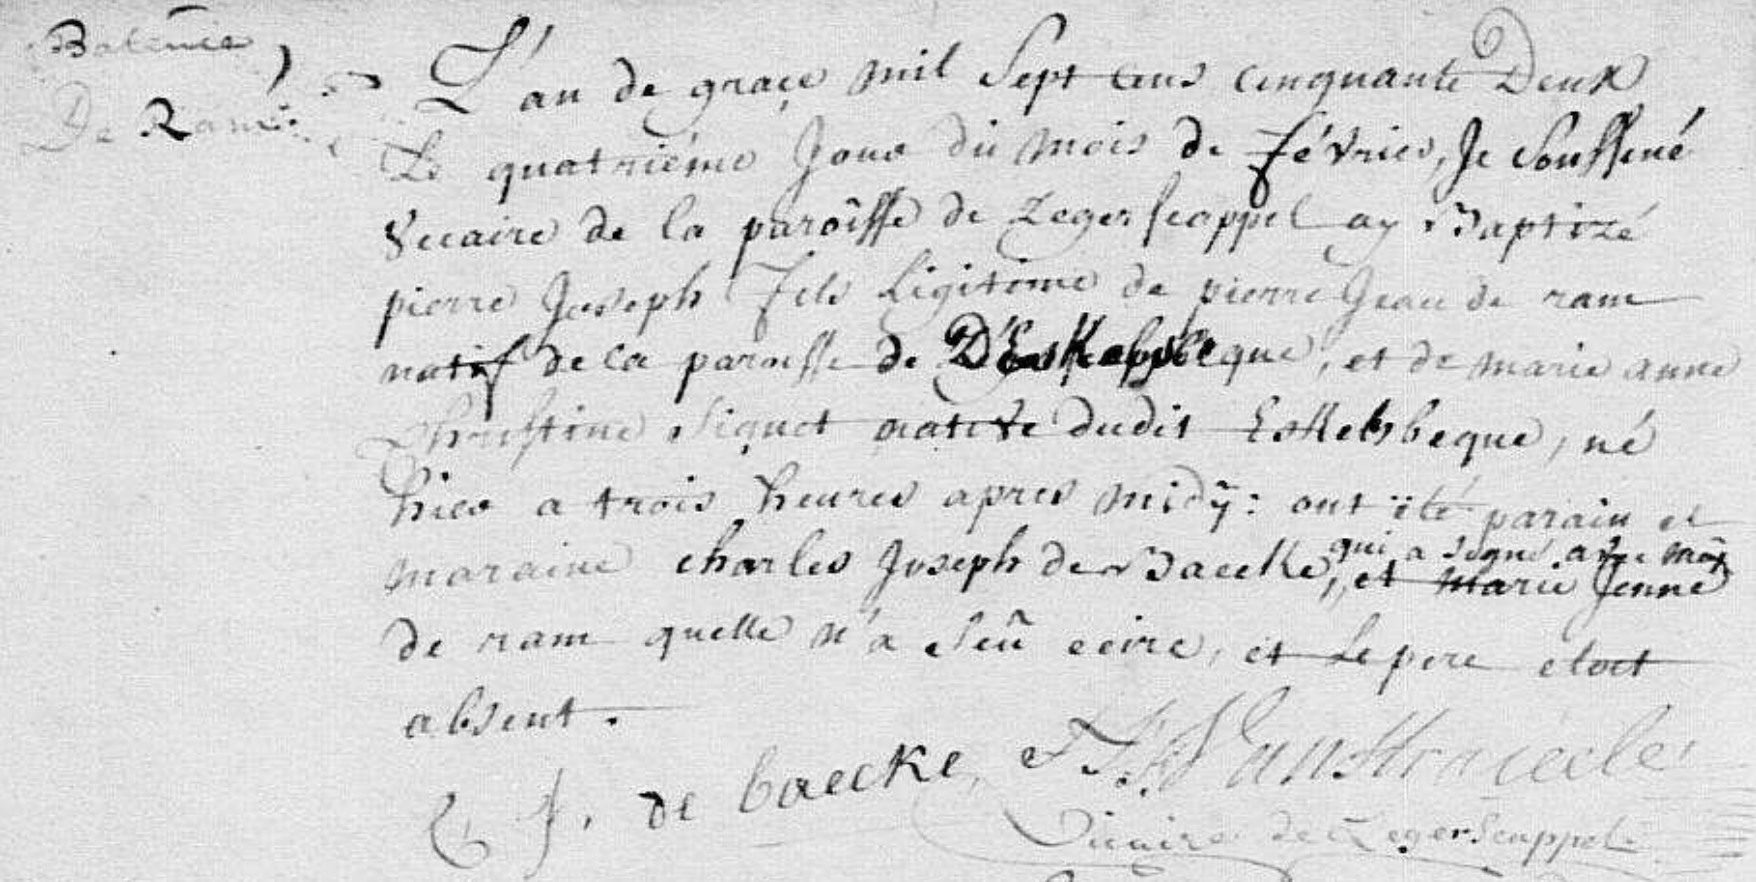 Batême
De Ram
L'an de graçe mil Sept cens cinquante Deux
Le quatriéme Jour du mois de février, Je Soussené
Vicaire de la paroîsse de Zegerscappel ay Baptizé
pierre Joseph fils Ligitime de pierre Jean de ram
natif de la paroisse de D'Eskelsbeque, et de marie anne
Christine Siquet native dudit Eskelsbeque, né
hier a trois heures apres midÿ: ont ëté parain et
maraine charles Joseph de Baecke, qui a signé avec moÿ, et Marie Jenne
de ram quelle n'a Seû ecire, et Le pere etoit
absent.
C J. de baecke, Vanstraceele
Vicaire de Zegerscappel